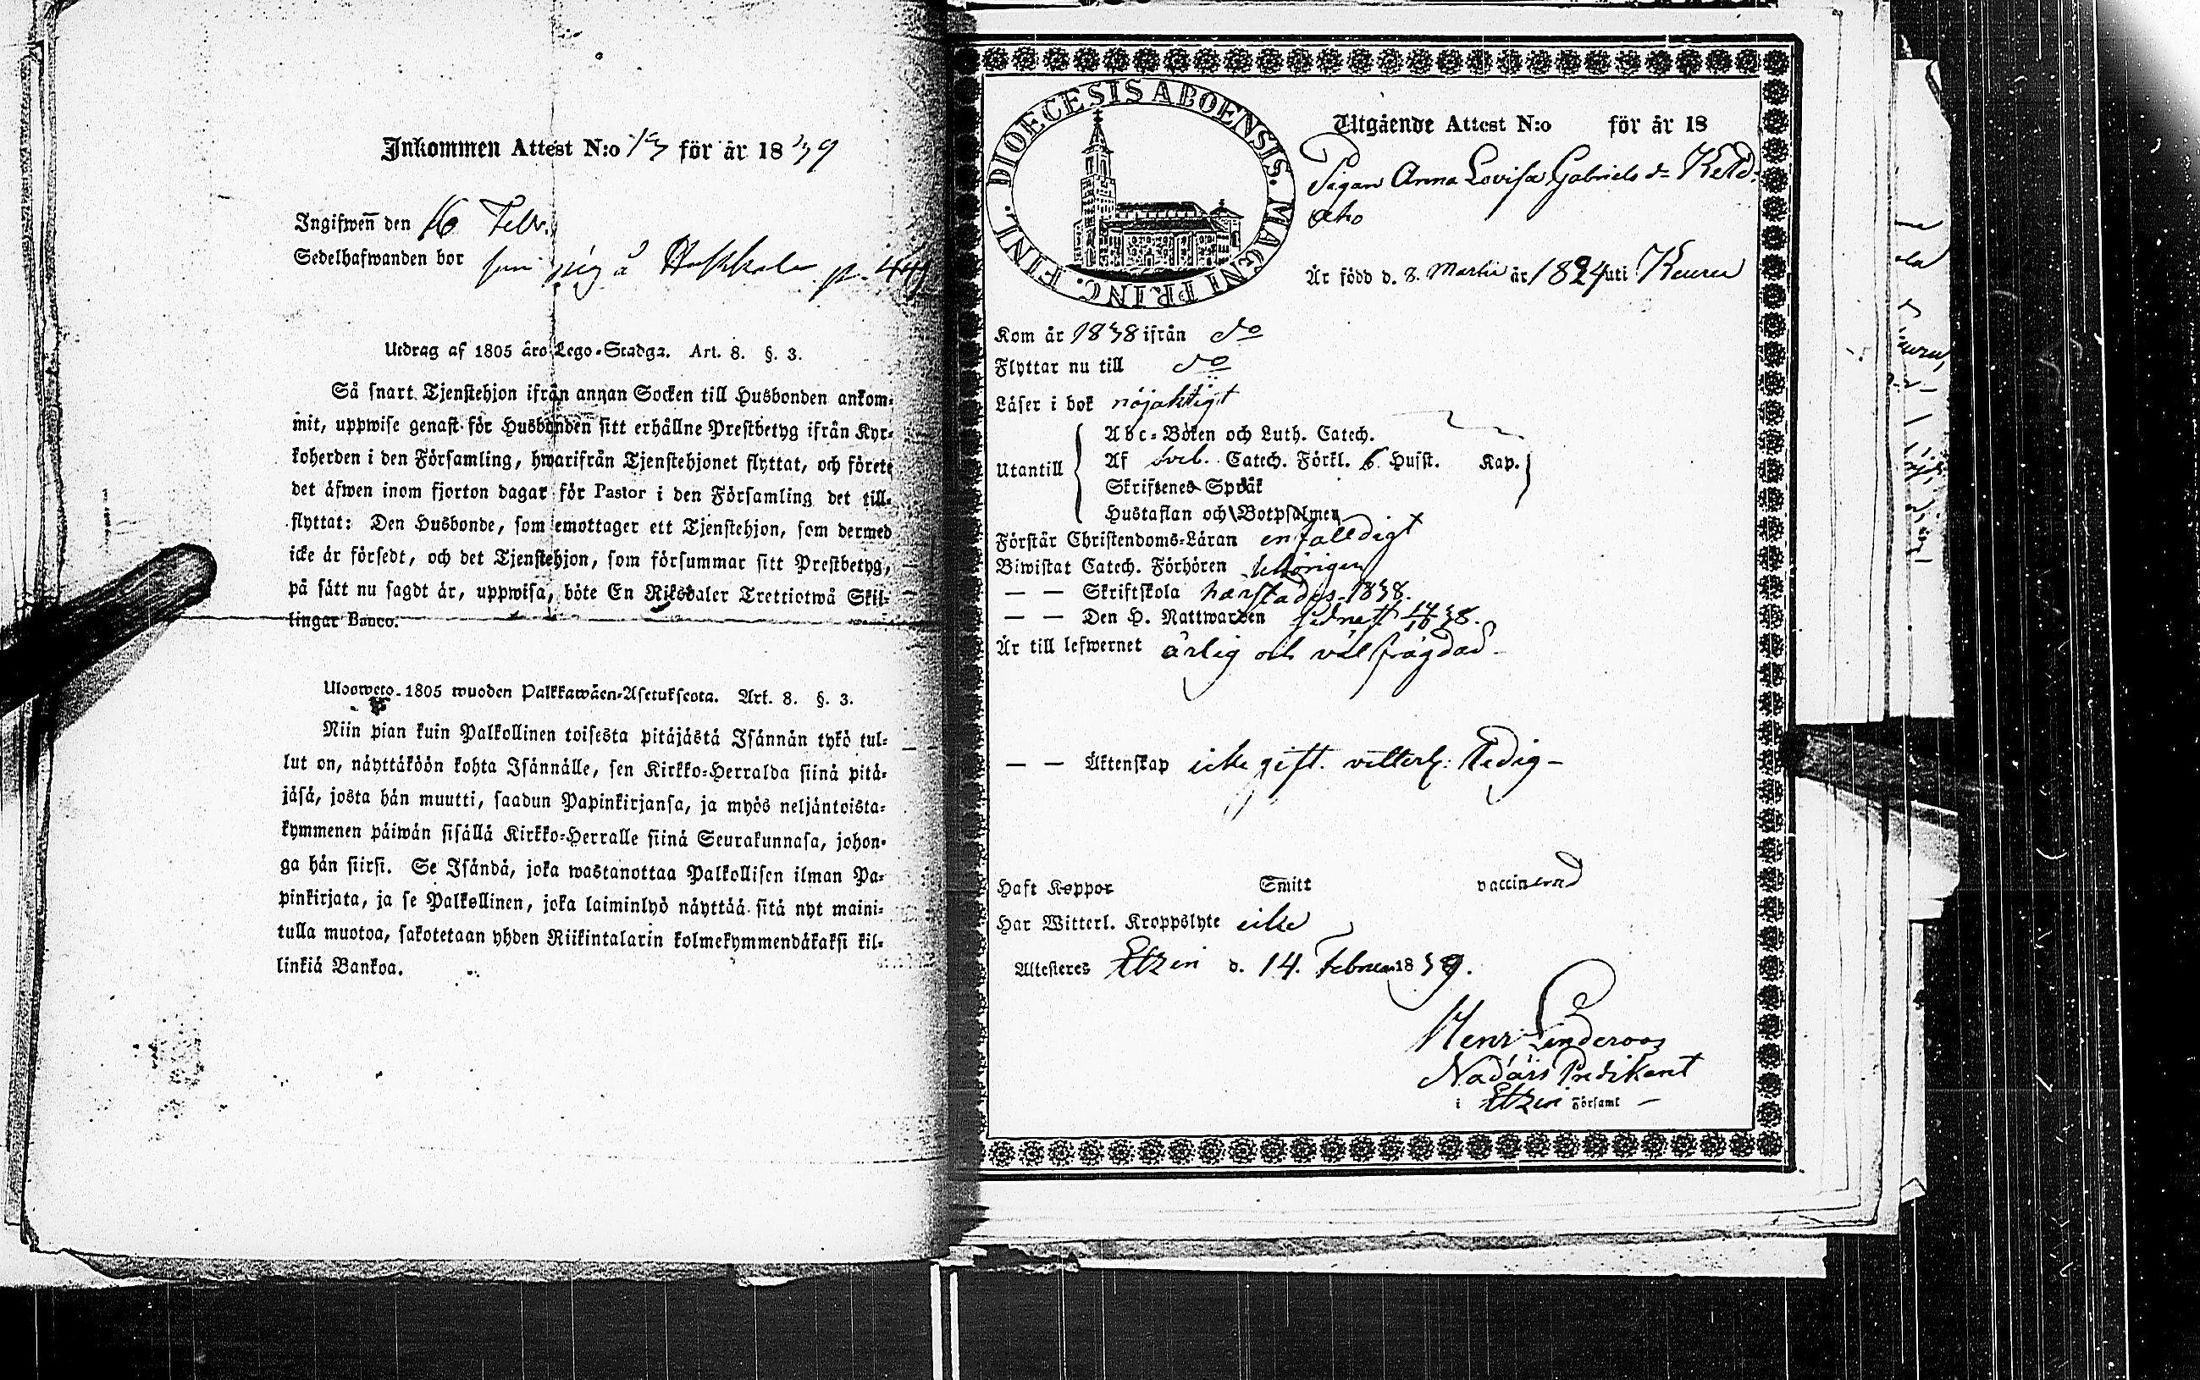 Inkommen Attest N:o 13 för år 1839
Ingifwen̄ den 16 Febr.
Sedelhafwanden bor sig å
Utdrag af 1805 års Lego-Stadga. Art. 8. §. 3.
Så snart Tjenstehjon ifrån annan Socken till Husbonden ankom-
mit, uppwise genast för Husbonden sitt erhållne Prestbetyg ifrån Kyr-
koherden i den Församling, hwarifrån Tjenstehjonet flyttat, och förete
det äfwen inom fjorton dagar för Pastor i den Församling det till-
flyttat: Den Husbonde, som emottager ett Tjenstehjon, som dermed
icke är försedt, och det Tjenstehjon, som försummar sitt Prestbetyg,
på sätt nu sagdt är, uppwisa, böte En Riksdaler Trettiotwå Skil-
lingar Banco.
Ulosweto 1805 wuoden Palkkawäen-Asetuksesta. Art. 8. §. 3.
Niin pian kuin Palkollinen toisesta pitäjästä Isännän tykö tul-
lut on, näyttäköön kohta Isännälle, sen Kirkko-Herralda siinä pitä-
jäsä, josta hän muutti, saadun Papinkirjansa, ja myös neljäntoista-
kymmenen päiwän sisällä Kirkko-Herralle siinä Seurakunnasa, johon-
ga hän siirsi. Se Isändä, joka wastanottaa Palkollisen ilman Pa-
pinkirjata, ja se Palkollinen, joka laiminlyö näyttää sitä nyt maini-
tulla muotoa, sakotetaan yhden Riikintalarin kolmekymmendäkaksi kil-
linkiä Bankoa.
DIOECESIS ABOENSIS. MAGNI PRINC. FINL.
Utgående Attest N:o för år 18
Pigan Anna Lovisa Gabriels d:
aho
Är född d. 8. Martii år 1824 uti Keuru
Kom år 1838 ifrån do
Flyttar nu till do
Läser i bok nöjaktigt
Utantill
Abc-Boken och Luth. Catech.
Af Sveb. Catech. Förkl. 6 Husst. Kap.
Skriftenes Språk
Hustaflan och Botpsalmer
Förstår Christendoms-Läran enfalldigt
Biwistat Catech. Förhören behörigen
— — Skriftskola härstädes 1838.
— — Den H. Nattwarden sednast 14/10 38.
Är till lefwernet ärlig och väl frägdad
— — Äktenskap icke gift. vitterl: ledig –
Haft Koppor Smitt vaccinerad
Har Witterl. Kroppslyte icke
Attesteres Etzeri d. 14. Februari 1839.
Henr Lenderoos
Nådårs Predikant
i Etzeri Församl